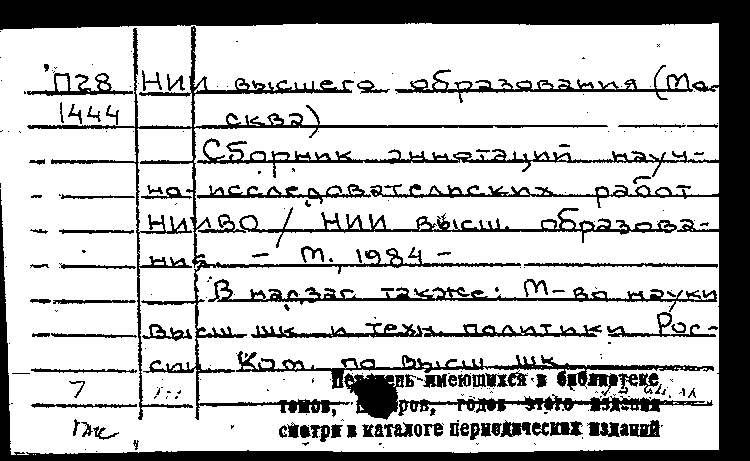 П28 НИИ высшего образования (Мо-
1444 сква)
Сборник аннотаций науч-
но-исследовательских работ
НИИВО / НИИ высш. образова-
ния. – М., 1984 –
В надзаг. также: М-во науки
высш шк и техн. политики Рос-
сии Ком. по высш шк.
7
Перечень имеющихся в библиотеке
томов, номеров, годов этого издания
смотри в каталоге периодических изданий